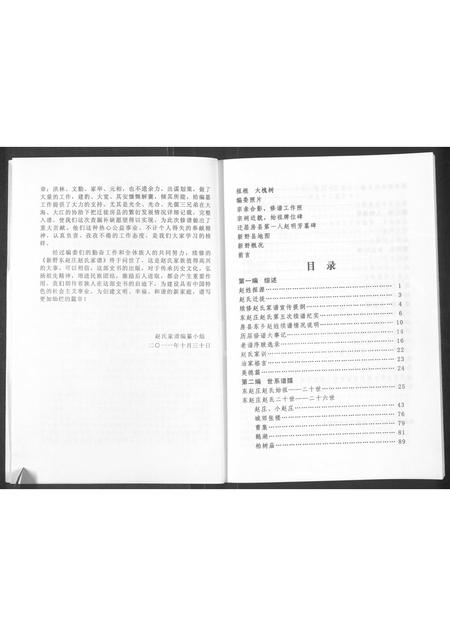 章；洪林、文勤、家举、元相，也不遗余力，出谋划策，做了
大量的工作。建韵、大宽、其安慷慨解囊，倾其所能，给编纂工
作提供了大力的支持。尤其是光全、光合、光强三兄弟在大
海、大江的协助下把迁徙房县的繁衍发展情况详细记载，完整
入谱，使我们这次查漏补缺愿望得以实现，为此次修谱做出了
重大贡献。他们这种热心公益事业，不计个人得失的奉献精
神，认真负责、孜孜不倦的工作态度，是我们大家学习的榜
样。
经过编委们的勤奋工作和全体族人的共同努力，续修的
《新野东赵庄赵氏家谱》终于问世了。这是赵氏家族值得高兴
的大事。可以相信，这部史书的出版，对于传承历史文化，弘
扬祖先精神，增进民族团结，激励后人奋进，将发挥积极作
用。我们期待着族人在这部史书的启迪下，为建设具有中国特
色的社会主义事业，为创建文明、幸福、和谐的新家庭，谱写
更加灿烂的篇章！
赵氏家谱编纂小组
二〇一一年十月三十日
祖根 大槐树
编委照片
宗亲合影、修谱工作照
宗祠近貌、始祖牌位碑
迁居房县第一人赵明芳墓碑
新野县地图
新野概况
前言
目 录
第一编 综述
赵姓探源 1
赵氏迁徙 3
续修赵氏家谱宣传提纲 4
东赵庄赵氏第五次续谱纪实 6
房县东乡赵姓续谱情况说明 10
历届修谱大事记 14
老谱序跋选录
赵氏家训
治家格言
美德篇
第二编 世系谱牒
东赵庄赵氏始祖——二十世 25
东赵庄赵氏二十世——二十六世
赵庄、小赵庄 43
城郊张楼 76
曹集 79
鹅湖 81
柏树庙 89